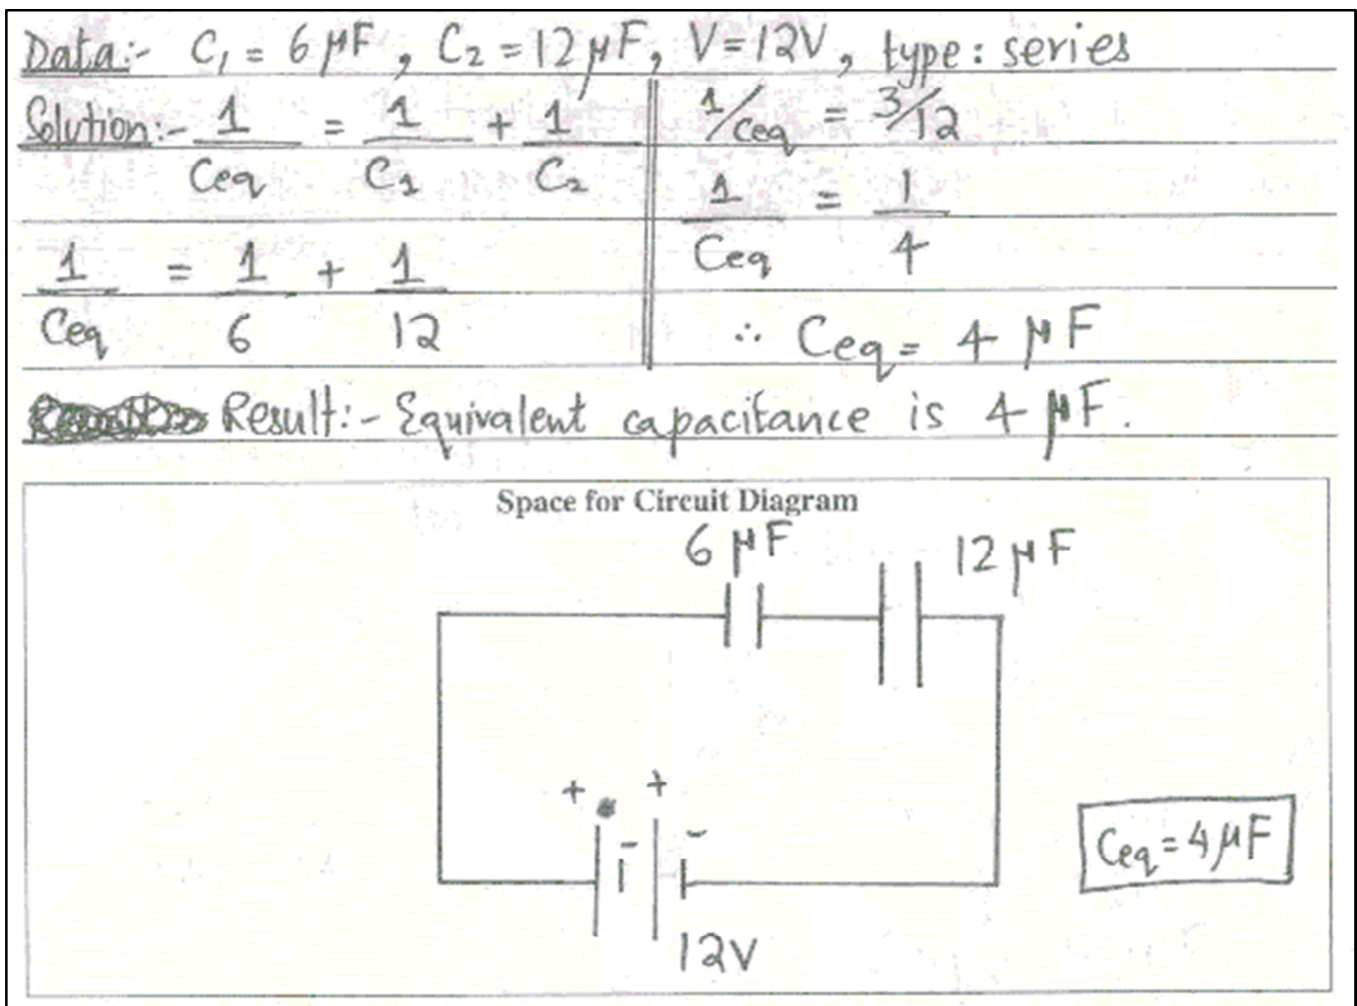 Data:- C₁ = 6 μF, C₂ = 12 μF, V = 12V, type: series
Solution:- 1/Ceq = 1/C₁ + 1/C₂
1/Ceq = 1/6 + 1/12
1/Ceq = 3/12
1/Ceq = 1/4
∴ Ceq = 4 μF
Result:- Equivalent capacitance is 4 μF.
Space for Circuit Diagram
6 μF
12 μF
+ +
- -
12V
Ceq = 4 μF